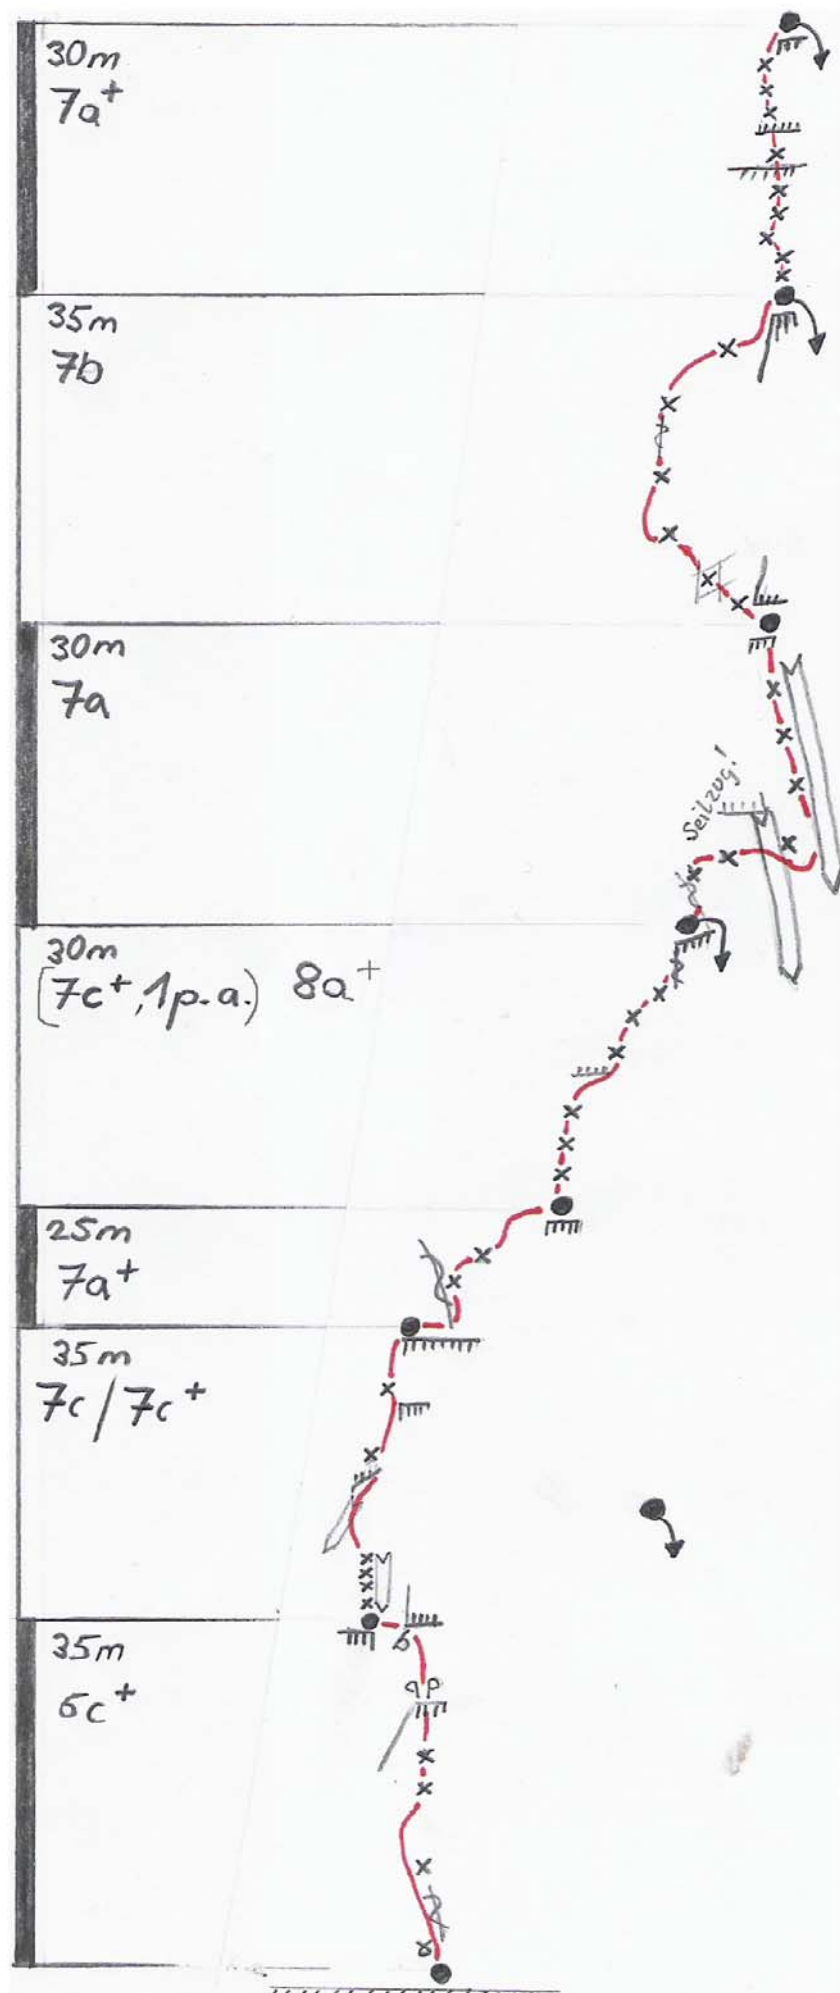 30m
7a+
35m
7b
30m
7a
Seilzug!
30m
(7c+, 1p.a.) 8a+
25m
7a+
35m
7c/7c+
35m
6c+